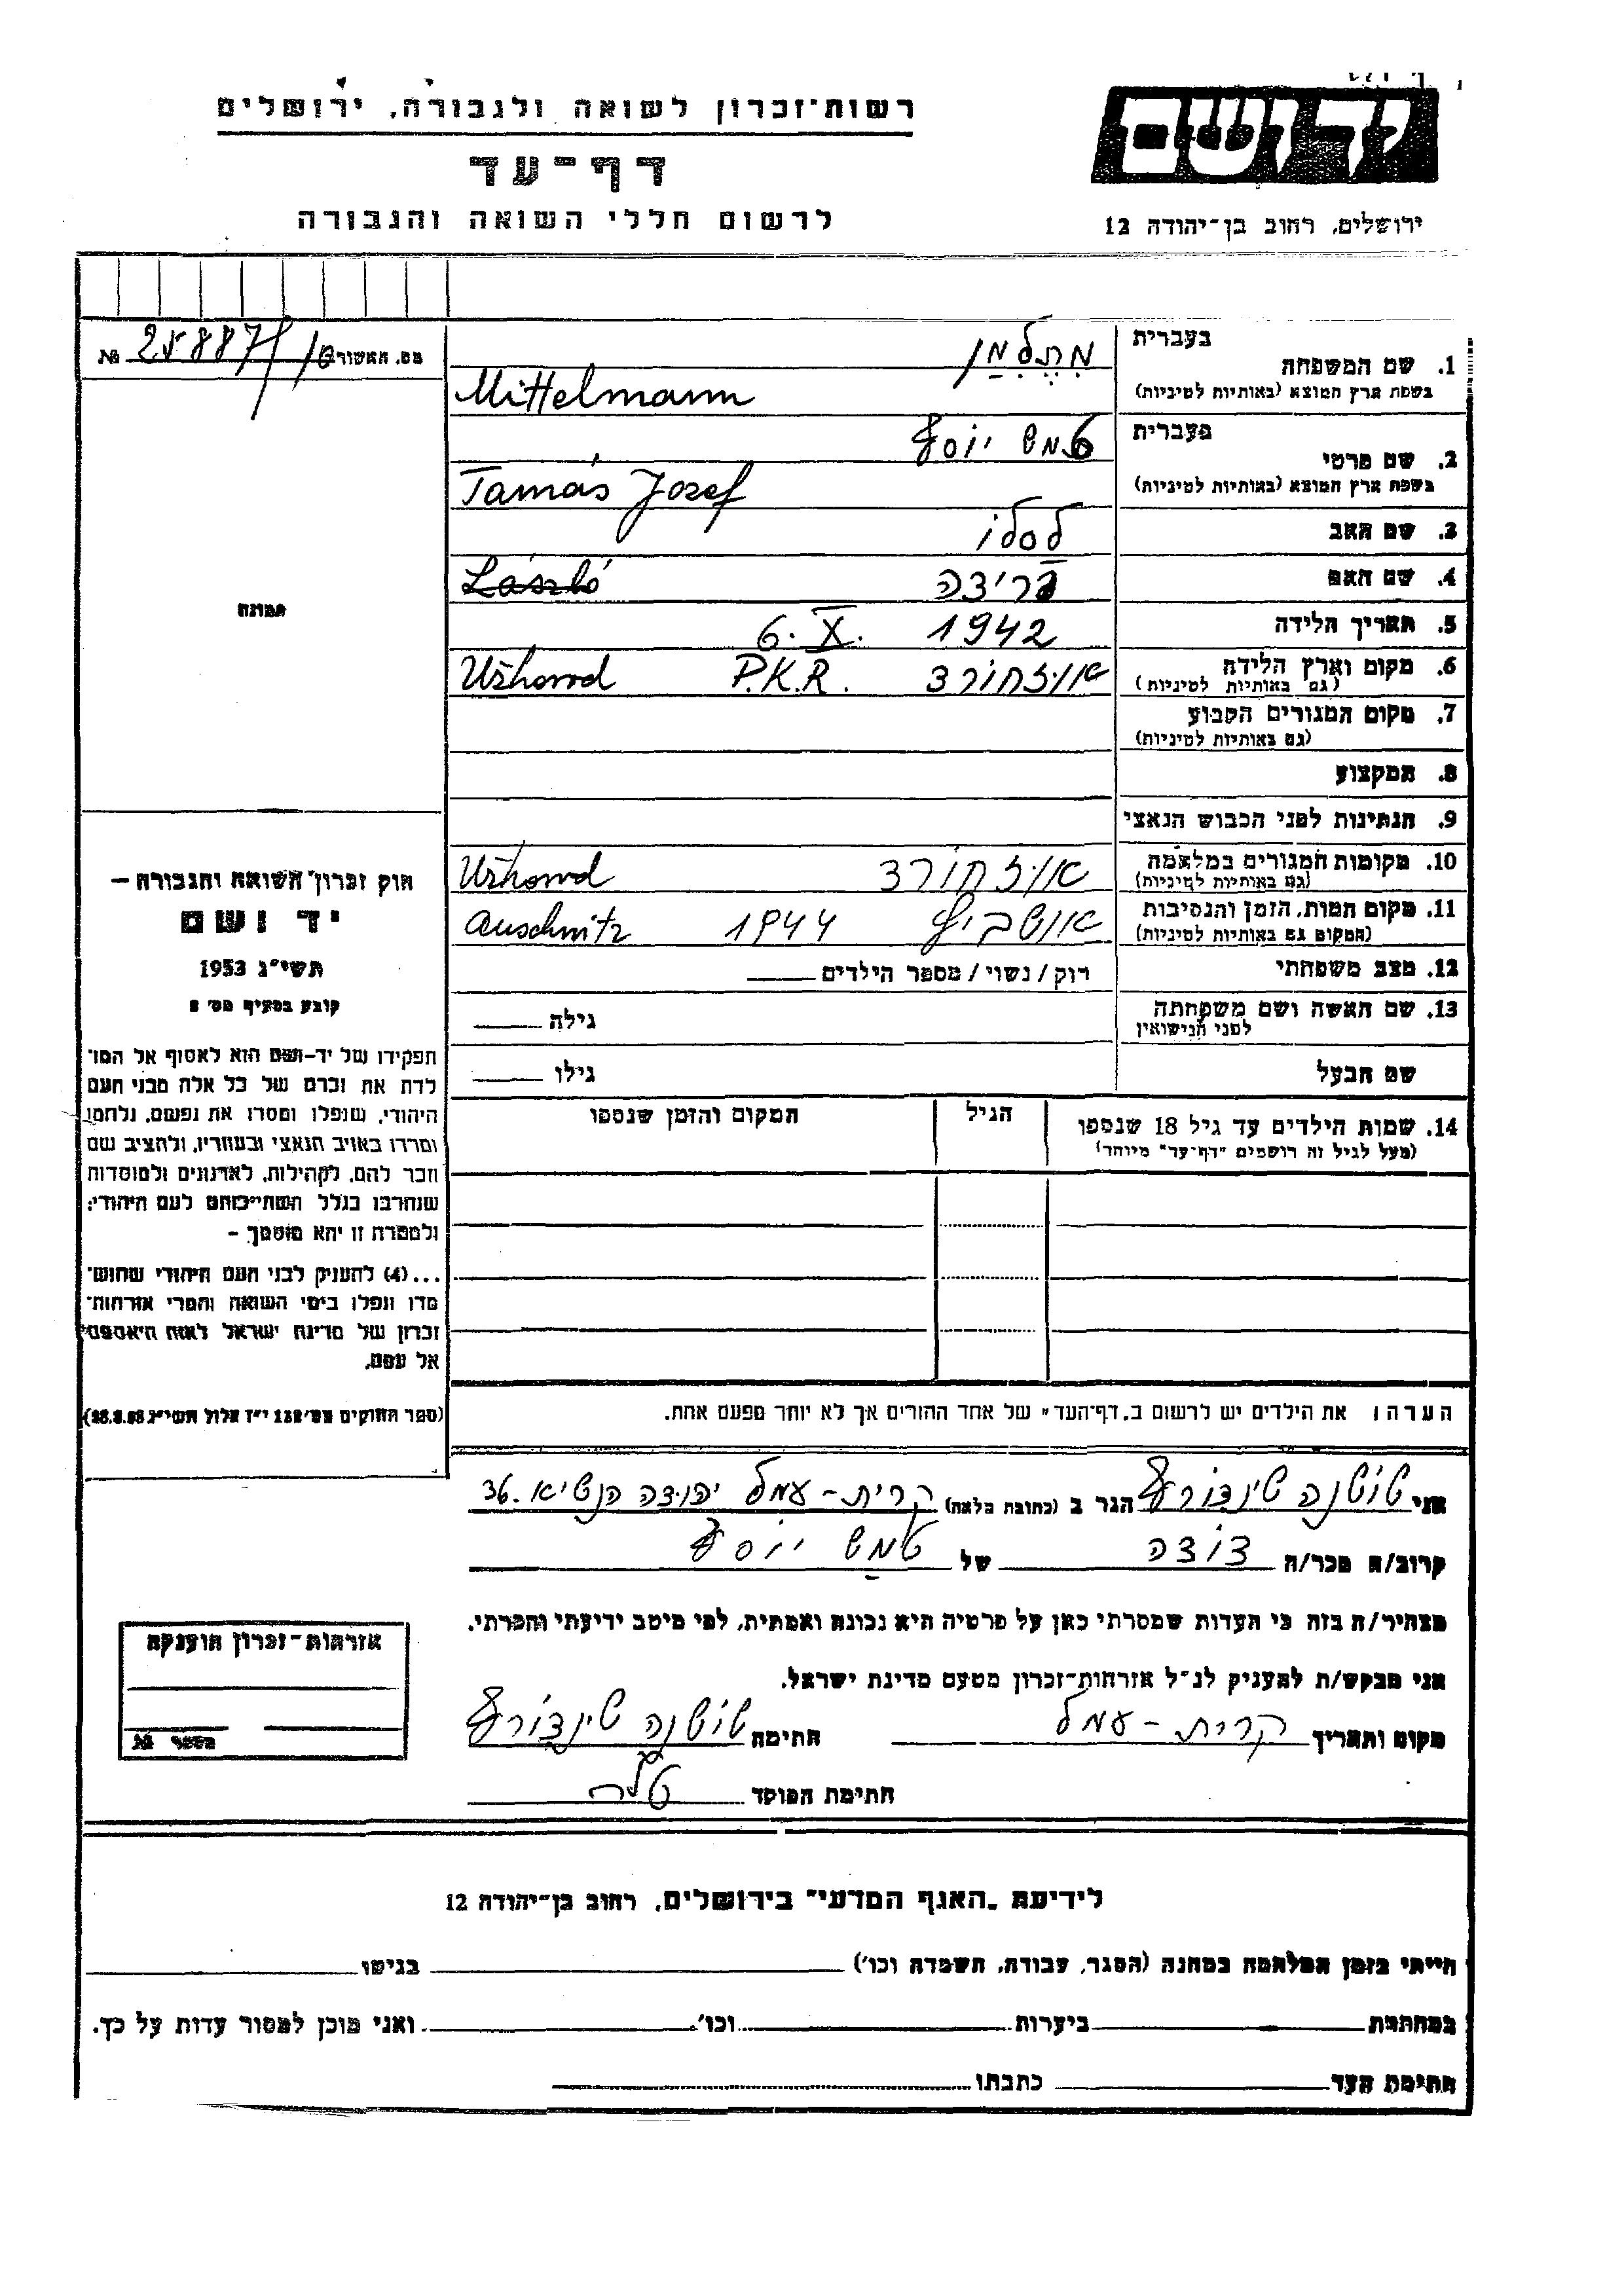 יד ושם
רשות־זכרון לשואה ולגבורה, ירושלים
דף־עד
לרשום חללי השואה והגבורה
ירושלים, רחוב בן־יהודה 12
מס. האשור
№
1. שם המשפחה
בעברית מתלמן
בשפת ארץ המוצא (באותיות לטיניות)
Mittelmann
2. שם פרטי
בעברית טמש יוסף
בשפת ארץ המוצא (באותיות לטיניות)
Tamás Jozef
3. שם האב לסלו
4. שם האם László
5. תאריך הלידה 6. X. 1942
6. מקום וארץ הלידה אוזהורד P.K.R. Užhorod
(גם באותיות לטיניות)
7. מקום המגורים הקבוע
(גם באותיות לטיניות)
8. המקצוע
9. הנתינות לפני הכבוש הנאצי
10. מקומות המגורים במלחמה אוזהורד Užhorod
(גם באותיות לטיניות)
11. מקום המות, הזמן והנסיבות אושביץ 1944 Auschwitz
(המקום גם באותיות לטיניות)
12. מצב משפחתי רוק / נשוי / מספר הילדים
13. שם האשה ושם משפחתה גילה
לפני הנישואין
שם הבעל גילו
14. שמות הילדים עד גיל 18 שנספו הגיל המקום והזמן שנספו
(מעל לגיל זה רושמים "דף־עד" מיוחד)
הערה: את הילדים יש לרשום ב„דף־העד" של אחד ההורים אך לא יותר מפעם אחת.
תמונה
חוק זכרון השואה והגבורה —
יד ושם
תשי"ג 1953
קובע בסעיף מס' 2
תפקידו של יד־ושם הוא לאסוף אל המו־
לדת את זכרם של כל אלה מבני העם
היהודי, שנפלו ומסרו את נפשם, נלחמו
ומרדו באויב הנאצי ובעוזריו, ולהציב שם
וזכר להם, לקהילות, לארגונים ולמוסדות
שנחרבו בגלל השתייכותם לעם היהודי;
ולמטרה זו יהא מוסמך —
...(4) להעניק לבני העם היהודי שהוש־
מדו ונפלו בימי השואה והמרי אזרחות־
זכרון של מדינת ישראל לאות היאספם
אל עמם.
(ספר החוקים מס' 132 י"ז אלול תשי"ג 28.8.53)
אני שושנה שינדורף הגר ב (כתובת מלאה) קרית-עמל יהודה הנשיא 36.
קרוב/ה מכר/ה דודה של טמש יוסף
מצהיר/ה בזה כי העדות שמסרתי כאן על פרטיה היא נכונה ואמתית, לפי מיטב ידיעתי והכרתי.
אני מבקש/ת להעניק לנ"ל אזרחות־זכרון מטעם מדינת ישראל.
מקום ותאריך קרית-עמל חתימה שושנה שינדורף
חתימת הפוקד
אזרחות־זכרון הוענקה
מספר №
לידיעת „האגף המדעי" בירושלים, רחוב בן־יהודה 12
הייתי בזמן המלחמה במחנה (הסגר, עבודה, השמדה וכו') בגיטו
במחתרת ביערות וכו'. ואני מוכן למסור עדות על כך.
חתימת העד כתבתו